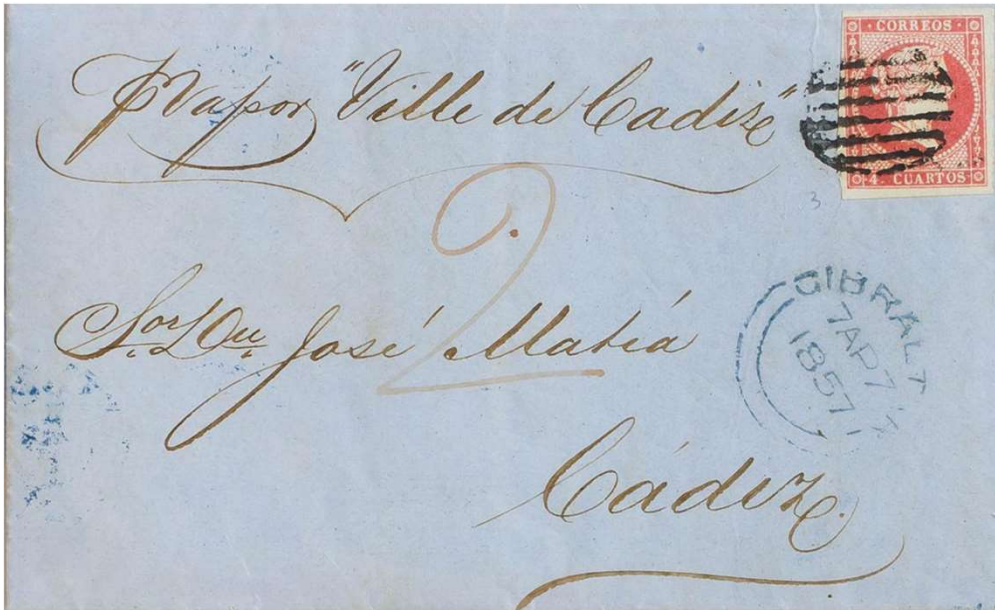 CORREOS
4 CUARTOS
p Vapor "Ville de Cadiz"
3
2
Sor. Dn. José Matía
GIBRALT
7 AP 7
1857
Cádiz.